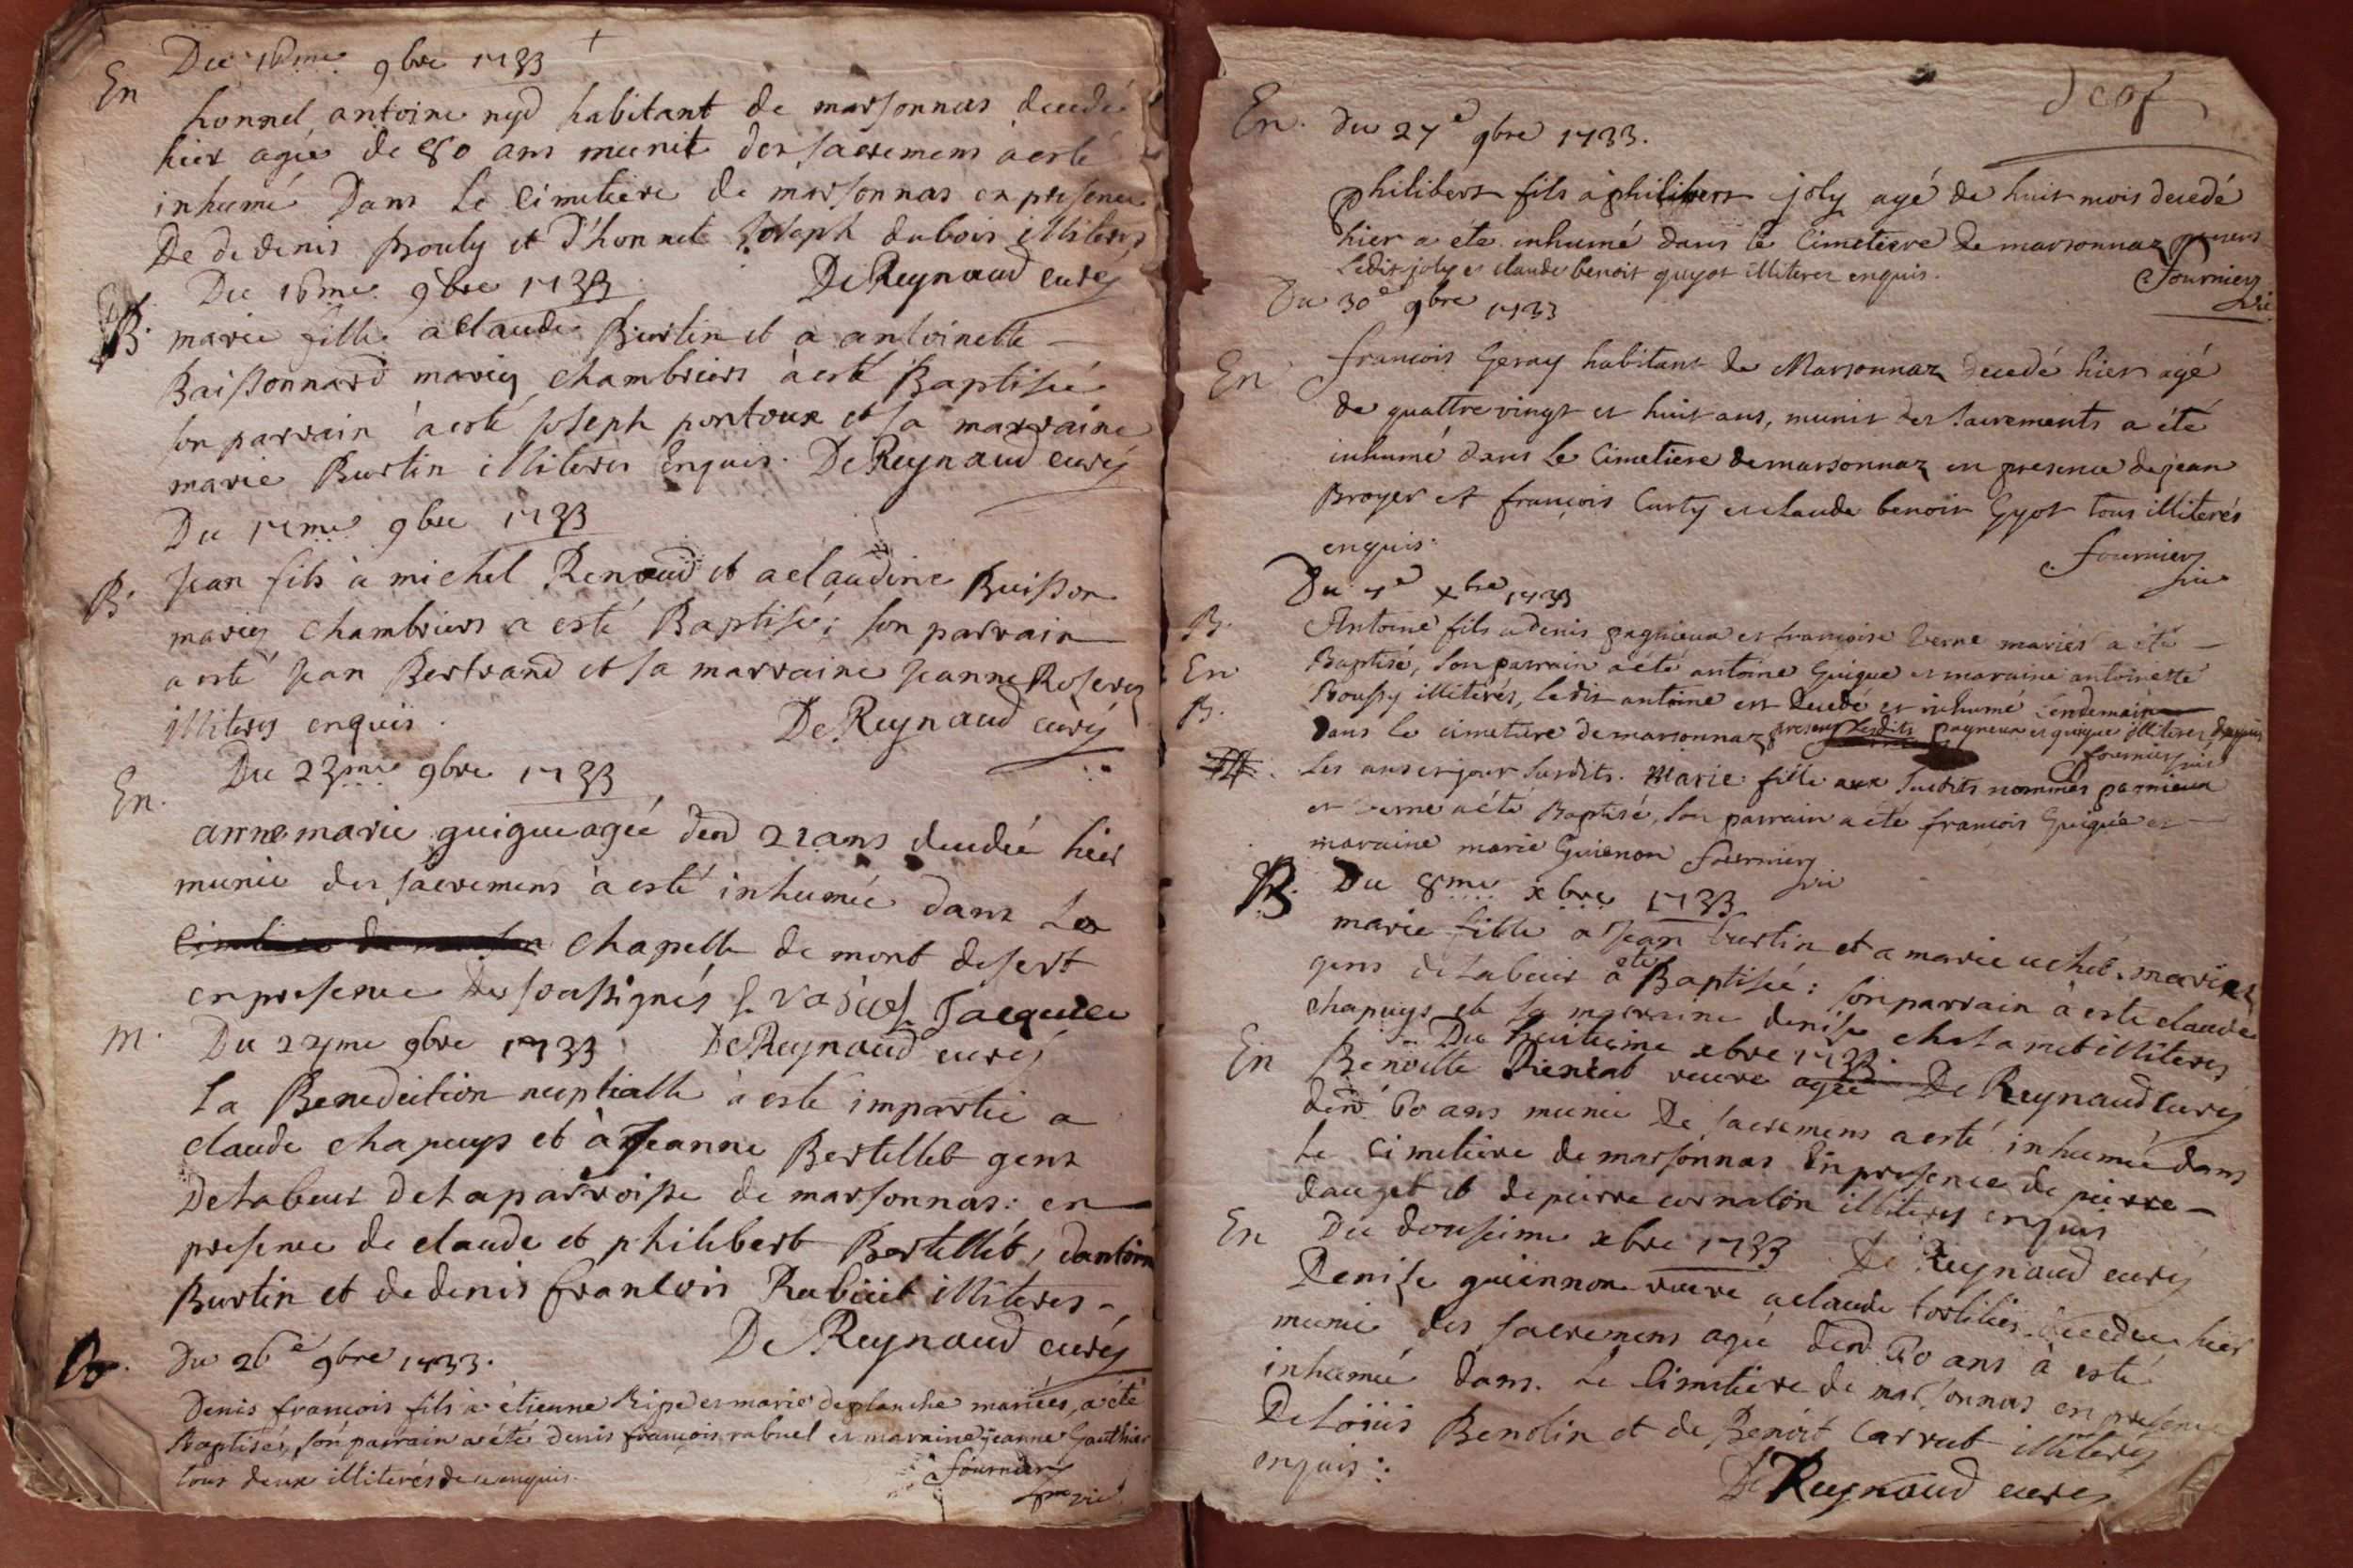 Du 16me 9bre 1733
En
honnet antoine nyd habitant de marsonnas decedé
hier agée de 80 ans munit des sacremens a esté
inhumé Dans Le Cimetiere de marsonnas en presence
De de denis Bouly et d'honnet Joseph dubois illiteres
Du 16me 9bre 1733 De Reynaud curé
B. marie fille a Claude Burtin et a antoinette
Baissonnard mariez chambriers à esté Baptisée
son parrain à esté Joseph pontoux et sa marraine
marie Burtin illiteres Enquis. De Reynaud curé
Du 17me 9bre 1733
B. Jean fils à michel Renaud et a claudine Buisson
mariez chambriers a esté Baptisé; son parrain
a esté Jean Bertrand et sa marraine Jeanne Roserez
illiteres enquis. De Reynaud curé
Du 23me 9bre 1733
En.
anne marie guigue agée den 21 ans decedée hier
munie des sacremens à esté inhumée dans La
chapelle de mont desert
en presence des soussignés Jacquier
M. Du 24me 9bre 1733 De Reynaud curé
La Benediction nuptialle à esté impartie a
claude chapuys et à Jeanne Bertellet gens
De Labeur de La parroisse de marsonnas: en
presence de claude et philibert Bertellet, dantoine
Burtin et de denis francois Rabüel illiteres
De Reynaud curé
B. Du 26e 9bre 1733.
Denis francois fils à étienne Ripe et marie deplanche mariées, a été
Baptisés, son parrain a été denis françois rabuel et maraine jeanne Gauthier
tous deux illiterés de ce enquis.
fournier
vic
En. Du 27e 9bre 1733.
philibert fils à philibert joly agé de huit mois decedé
hier a été inhumé dans le Cimetiere de marsonnaz presens
Ledit joly et claude benoit guyot illiteres enquis. fournier
vic
Du 30e 9bre 1733
En francois Geray habitant de Marsonnaz decedé hier agé
de quattre vingt et huit ans, munit des sacrements a été
inhumé dans Le Cimetiere de marsonnaz en presence de jean
Broyer et françois Curty et claude benoit Gyot tous illiterés
enquis. fournier
vic
Du 7e xbre 1733
B. Antoine fils a denis pagnieux et francoise Verne mariés a été
En Baptisé, son parrain a été antoine Guigue et maraine antoinette
B. Boussy illiterés, ledit antoine est decedé et inhumé Lendemain
Dans le cimetiere de marsonnaz presens lesdits pagneux et guigue illiteres enquis
fournier vic
Les an et jour susdits. Marie fille aux susdits nommés pagnieux
et Verne a été Baptisé, son parrain a été francois Guigue et
maraine marie Guienon fournier
vic
B. Du 8me xbre 1733
marie fille a Jean burtin et a marie uché mariez
gens de Labeur a été Baptisée: son parrain à esté claude
chapuys et sa marraine denise chatannet illiteres
En Du huitieme xbre 1733. De Reynaud curé
Benoitte veuve agée
den 60 ans munie De sacremens a esté inhumée dans
Le Cimetiere de marsonnas En presence de pierre
dauget et de pierre cornaton illiteres enquis
En Du dousieme xbre 1733 De Reynaud curé
Denise guiennon veuve a claude tortilier decedee hier
munie des sacremens agée den 60 ans à esté
inhumée dans Le Cimetiere de marsonnas en presence
De Loüis Benotin et de Benoit Carrat illiteres
enquis:
De Reynaud curé